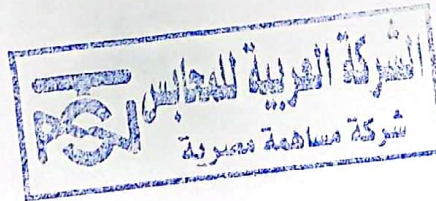 الشركة العربية للمحابس
شركة مساهمة مصرية